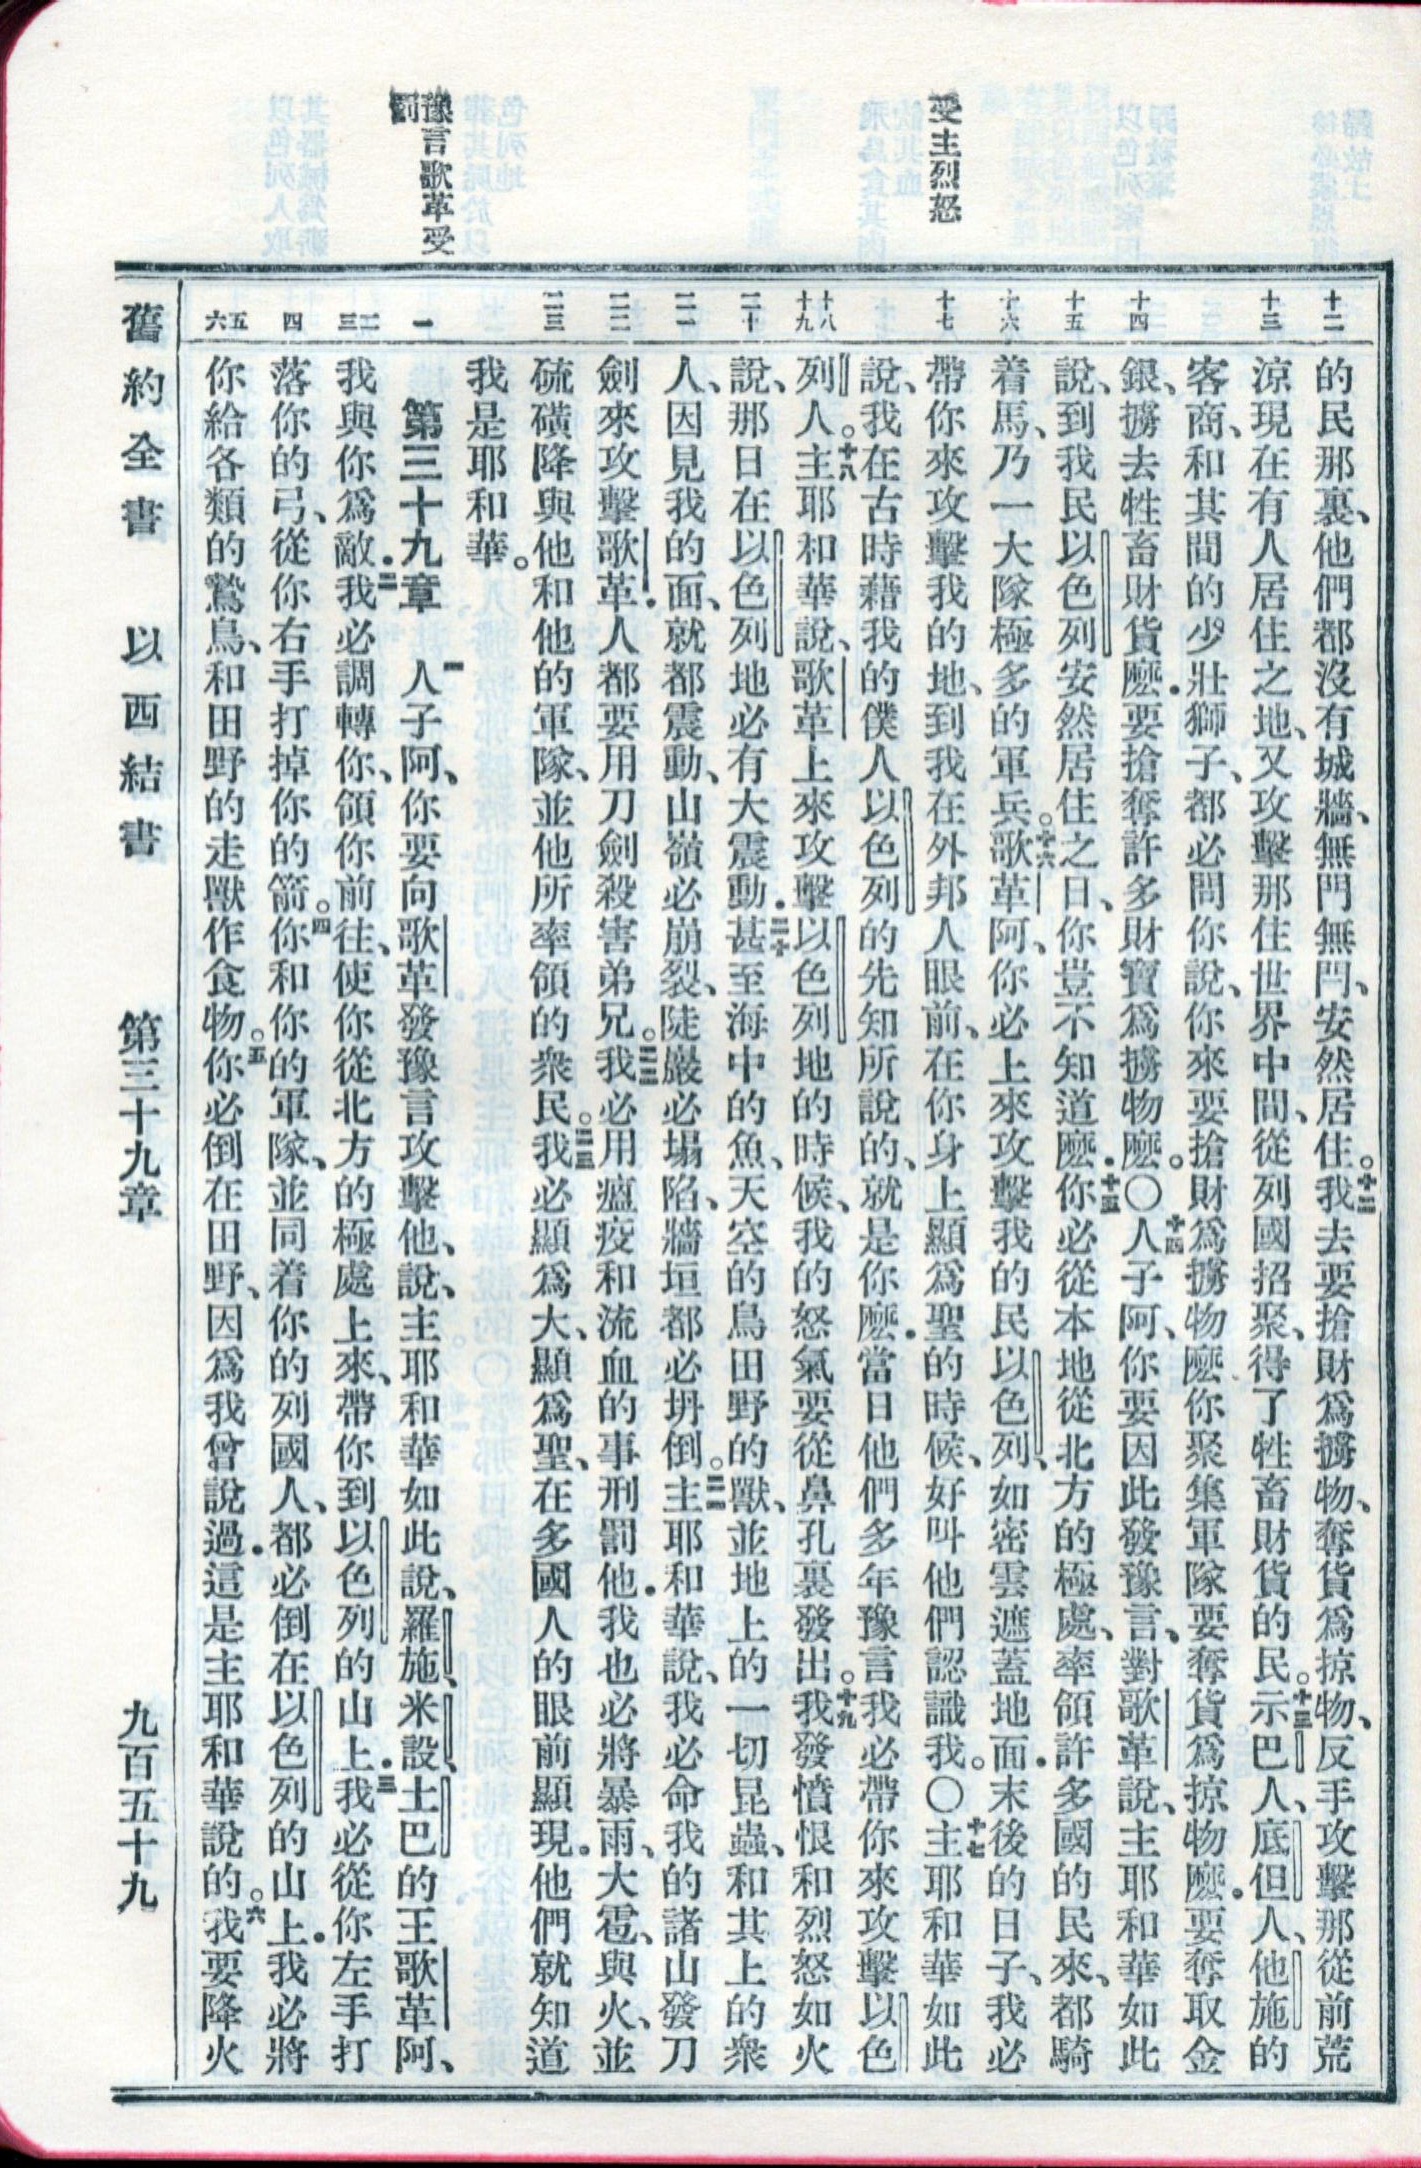 受主烈怒
豫言歌革受
罰
十二
十三
十四
十五
十六
十七
十八
十九
二十
二一
二二
二三
一
二
三
四
五
六
的民那裏、他們都沒有城牆、無門無閂、安然居住。十二我去要搶財爲擄物、奪貨爲掠物、反手攻擊那從前荒
涼現在有人居住之地、又攻擊那住世界中間、從列國招聚、得了牲畜財貨的民。十三示巴人、底但人、他施的
客商、和其間的少壯獅子、都必問你說、你來要搶財爲擄物麽你聚集軍隊要奪貨爲掠物麽.要奪取金
銀、擄去牲畜財貨麽.要搶奪許多財寶爲擄物麽。〇十四人子阿、你要因此發豫言、對歌革說、主耶和華如此
說、到我民以色列安然居住之日、你豈不知道麽.十五你必從本地從北方的極處、率領許多國的民來、都騎
着馬、乃一大隊極多的軍兵。十六歌革阿、你必上來攻擊我的民以色列、如密雲遮蓋地面.末後的日子、我必
帶你來攻擊我的地、到我在外邦人眼前、在你身上顯爲聖的時候、好叫他們認識我。〇十七主耶和華如此
說、我在古時藉我的僕人以色列的先知所說的、就是你麽.當日他們多年豫言我必帶你來攻擊以色
列人。十八主耶和華說、歌革上來攻擊以色列地的時候、我的怒氣要從鼻孔裏發出。十九我發憤恨和烈怒如火
說、那日在以色列地必有大震動.二十甚至海中的魚、天空的鳥田野的獸、並地上的一切昆蟲、和其上的衆
人、因見我的面、就都震動、山嶺必崩裂、陡巖必塌陷、牆垣都必坍倒。二一主耶和華說、我必命我的諸山發刀
劍來攻擊歌革.人都要用刀劍殺害弟兄。二二我必用瘟疫和流血的事刑罰他.我也必將暴雨、大雹、與火、並
硫磺降與他和他的軍隊、並他所率領的衆民。二三我必顯爲大、顯爲聖、在多國人的眼前顯現.他們就知道
我是耶和華。
第三十九章 一人子阿、你要向歌革發豫言攻擊他、說、主耶和華如此說、羅施、米設、土巴的王歌革阿、
我與你爲敵.二我必調轉你、領你前往、使你從北方的極處上來、帶你到以色列的山上.三我必從你左手打
落你的弓、從你右手打掉你的箭。四你和你的軍隊、並同着你的列國人、都必倒在以色列的山上.我必將
你給各類的鷙鳥、和田野的走獸作食物。五你必倒在田野、因爲我曾說過.這是主耶和華說的。六我要降火
舊約全書 以西結書 第三十九章 九百五十九